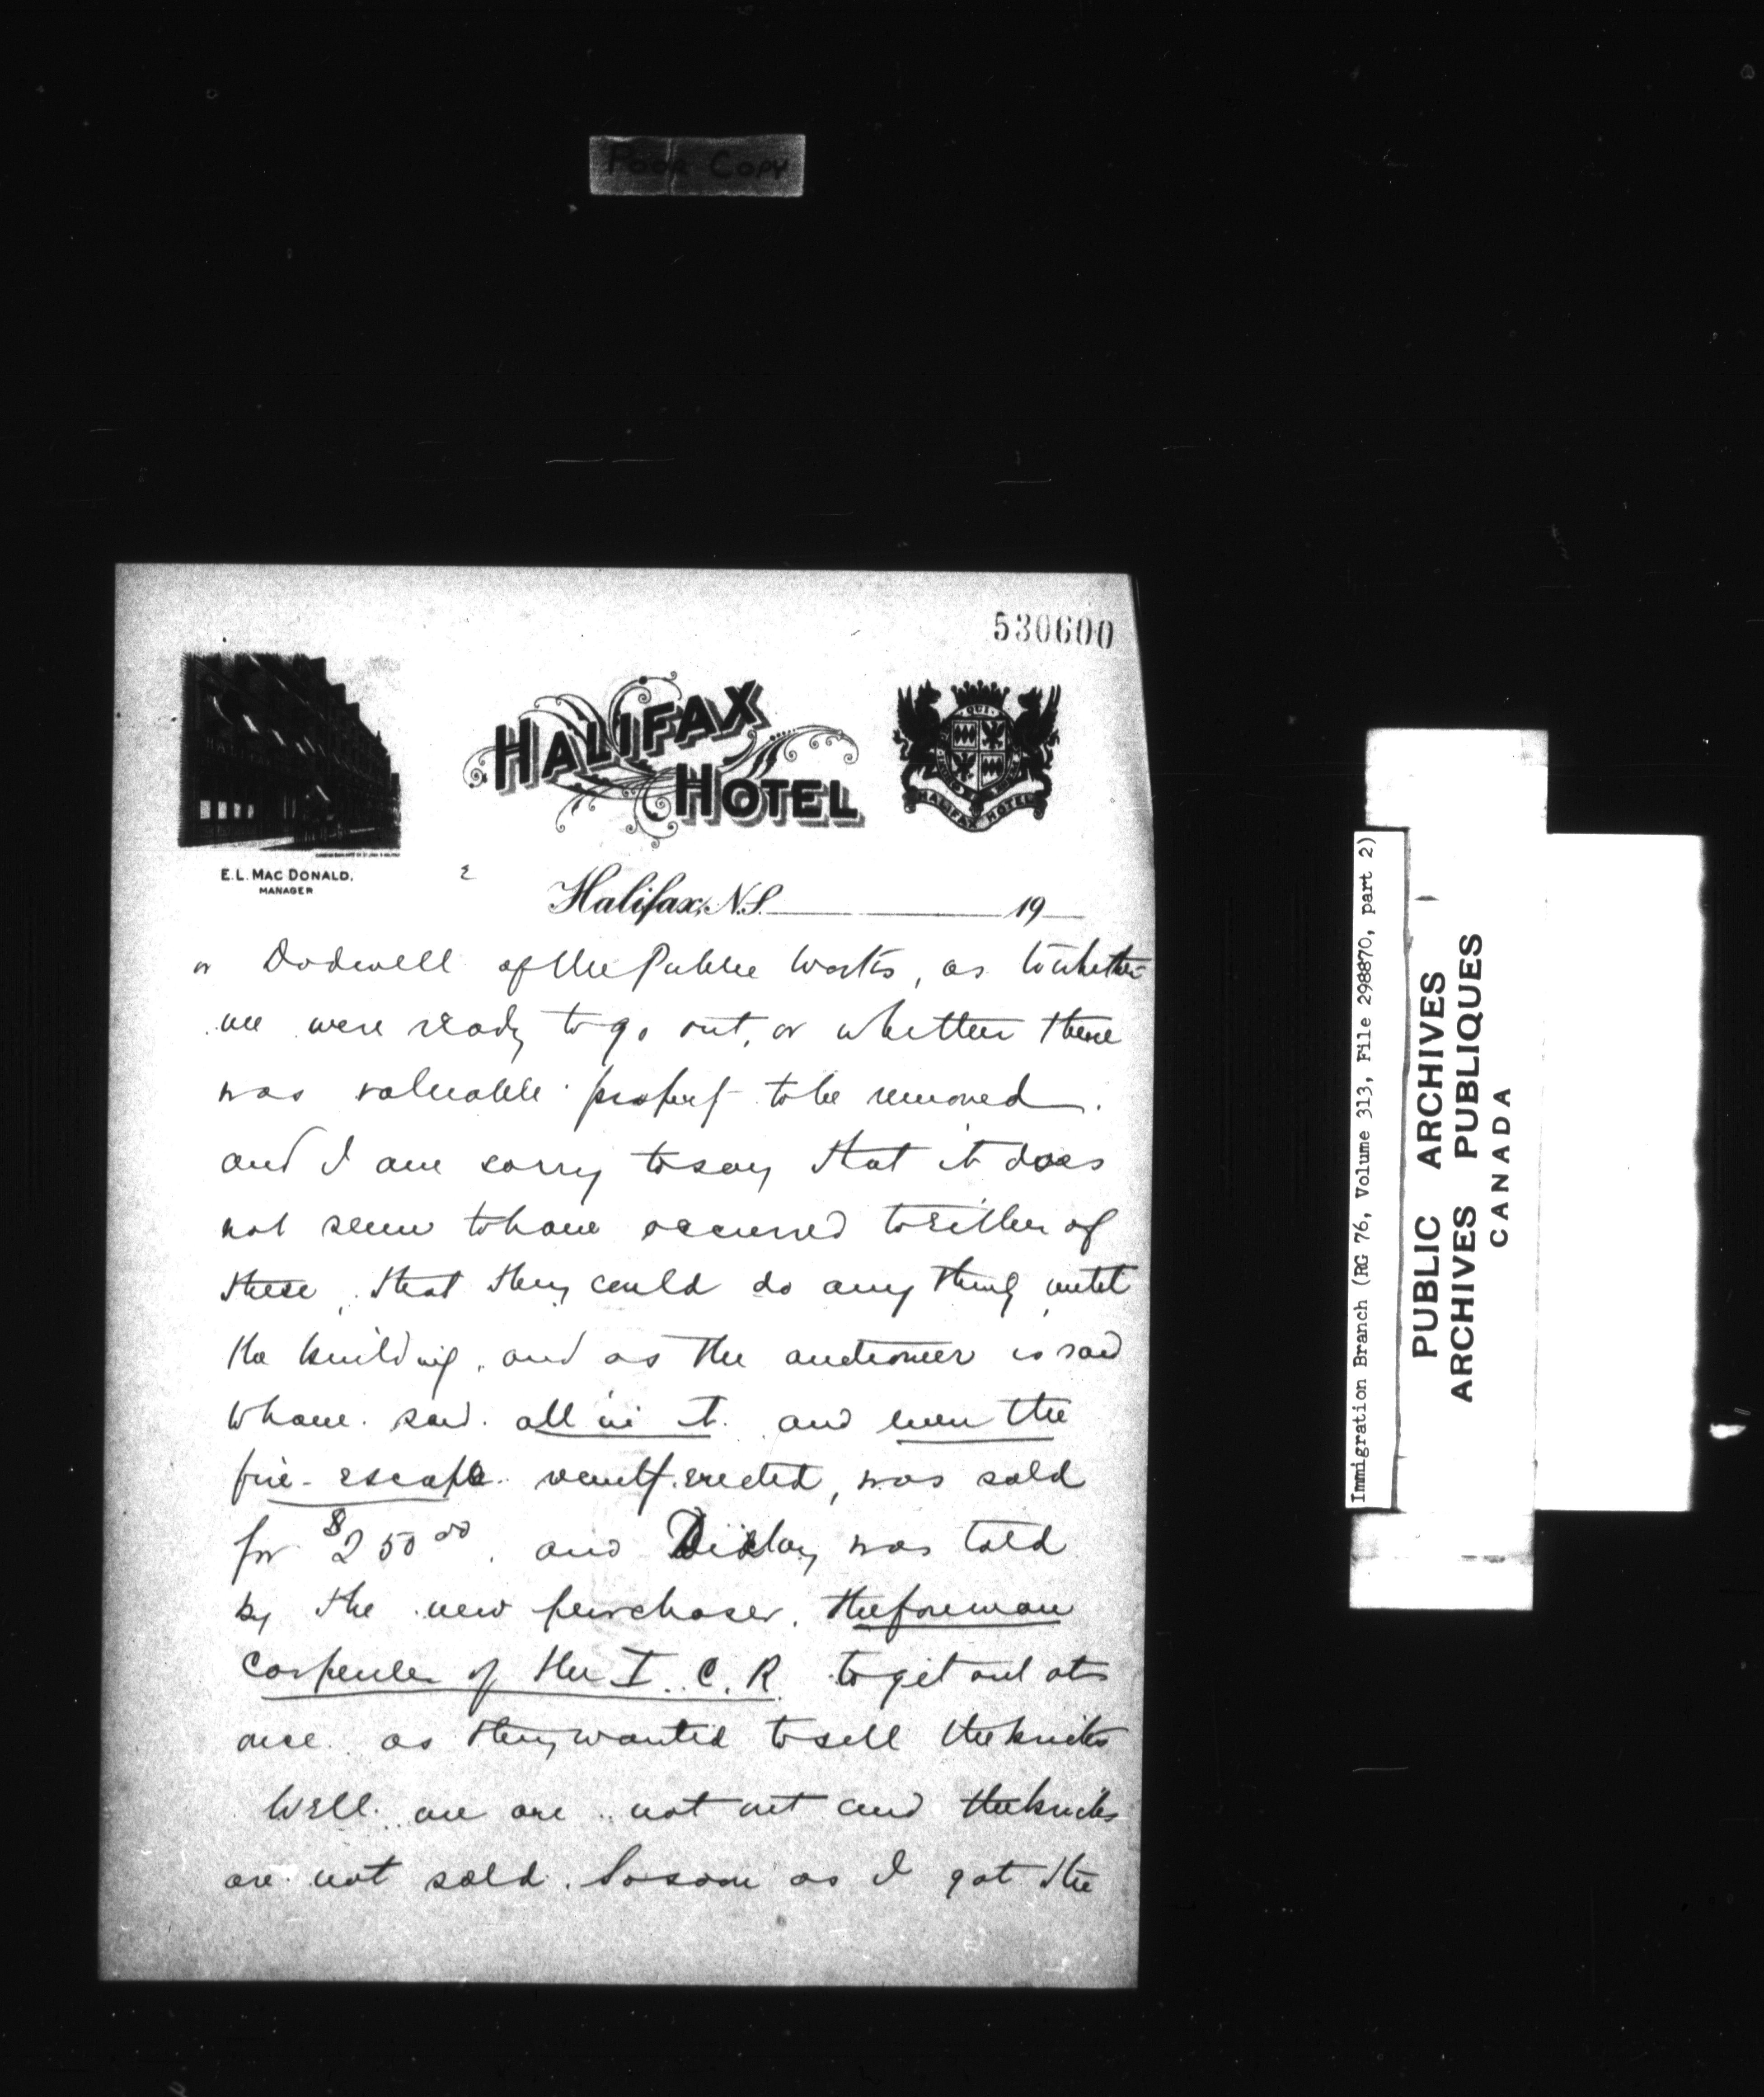 POOR COPY
530600
HALIFAX
HOTEL
QUI
HALIFAX HOTEL
E. L. MAC DONALD,
MANAGER
2
Halifax, N.S. 19
or Dodwell of the Public Works, as to whether
we were ready to go out, or whether there
was valuable property to be removed.
and I am sorry to say that it does
not seem to have occurred to either of
these, that they could do any thing until
the building, and as the auctioneer is said
to have said all in it and even the
fire-escape erected, was sold
for $250 00, and was told
by the new purchaser, the foreman
Carpenter of the I. C. R. to get out at
once as they wanted to sell the bricks
Well we are not out and the bricks
are not sold. So soon as I got the
Immigration Branch (RG 76, Volume 313, File 298870, part 2)
PUBLIC ARCHIVES
ARCHIVES PUBLIQUES
CANADA